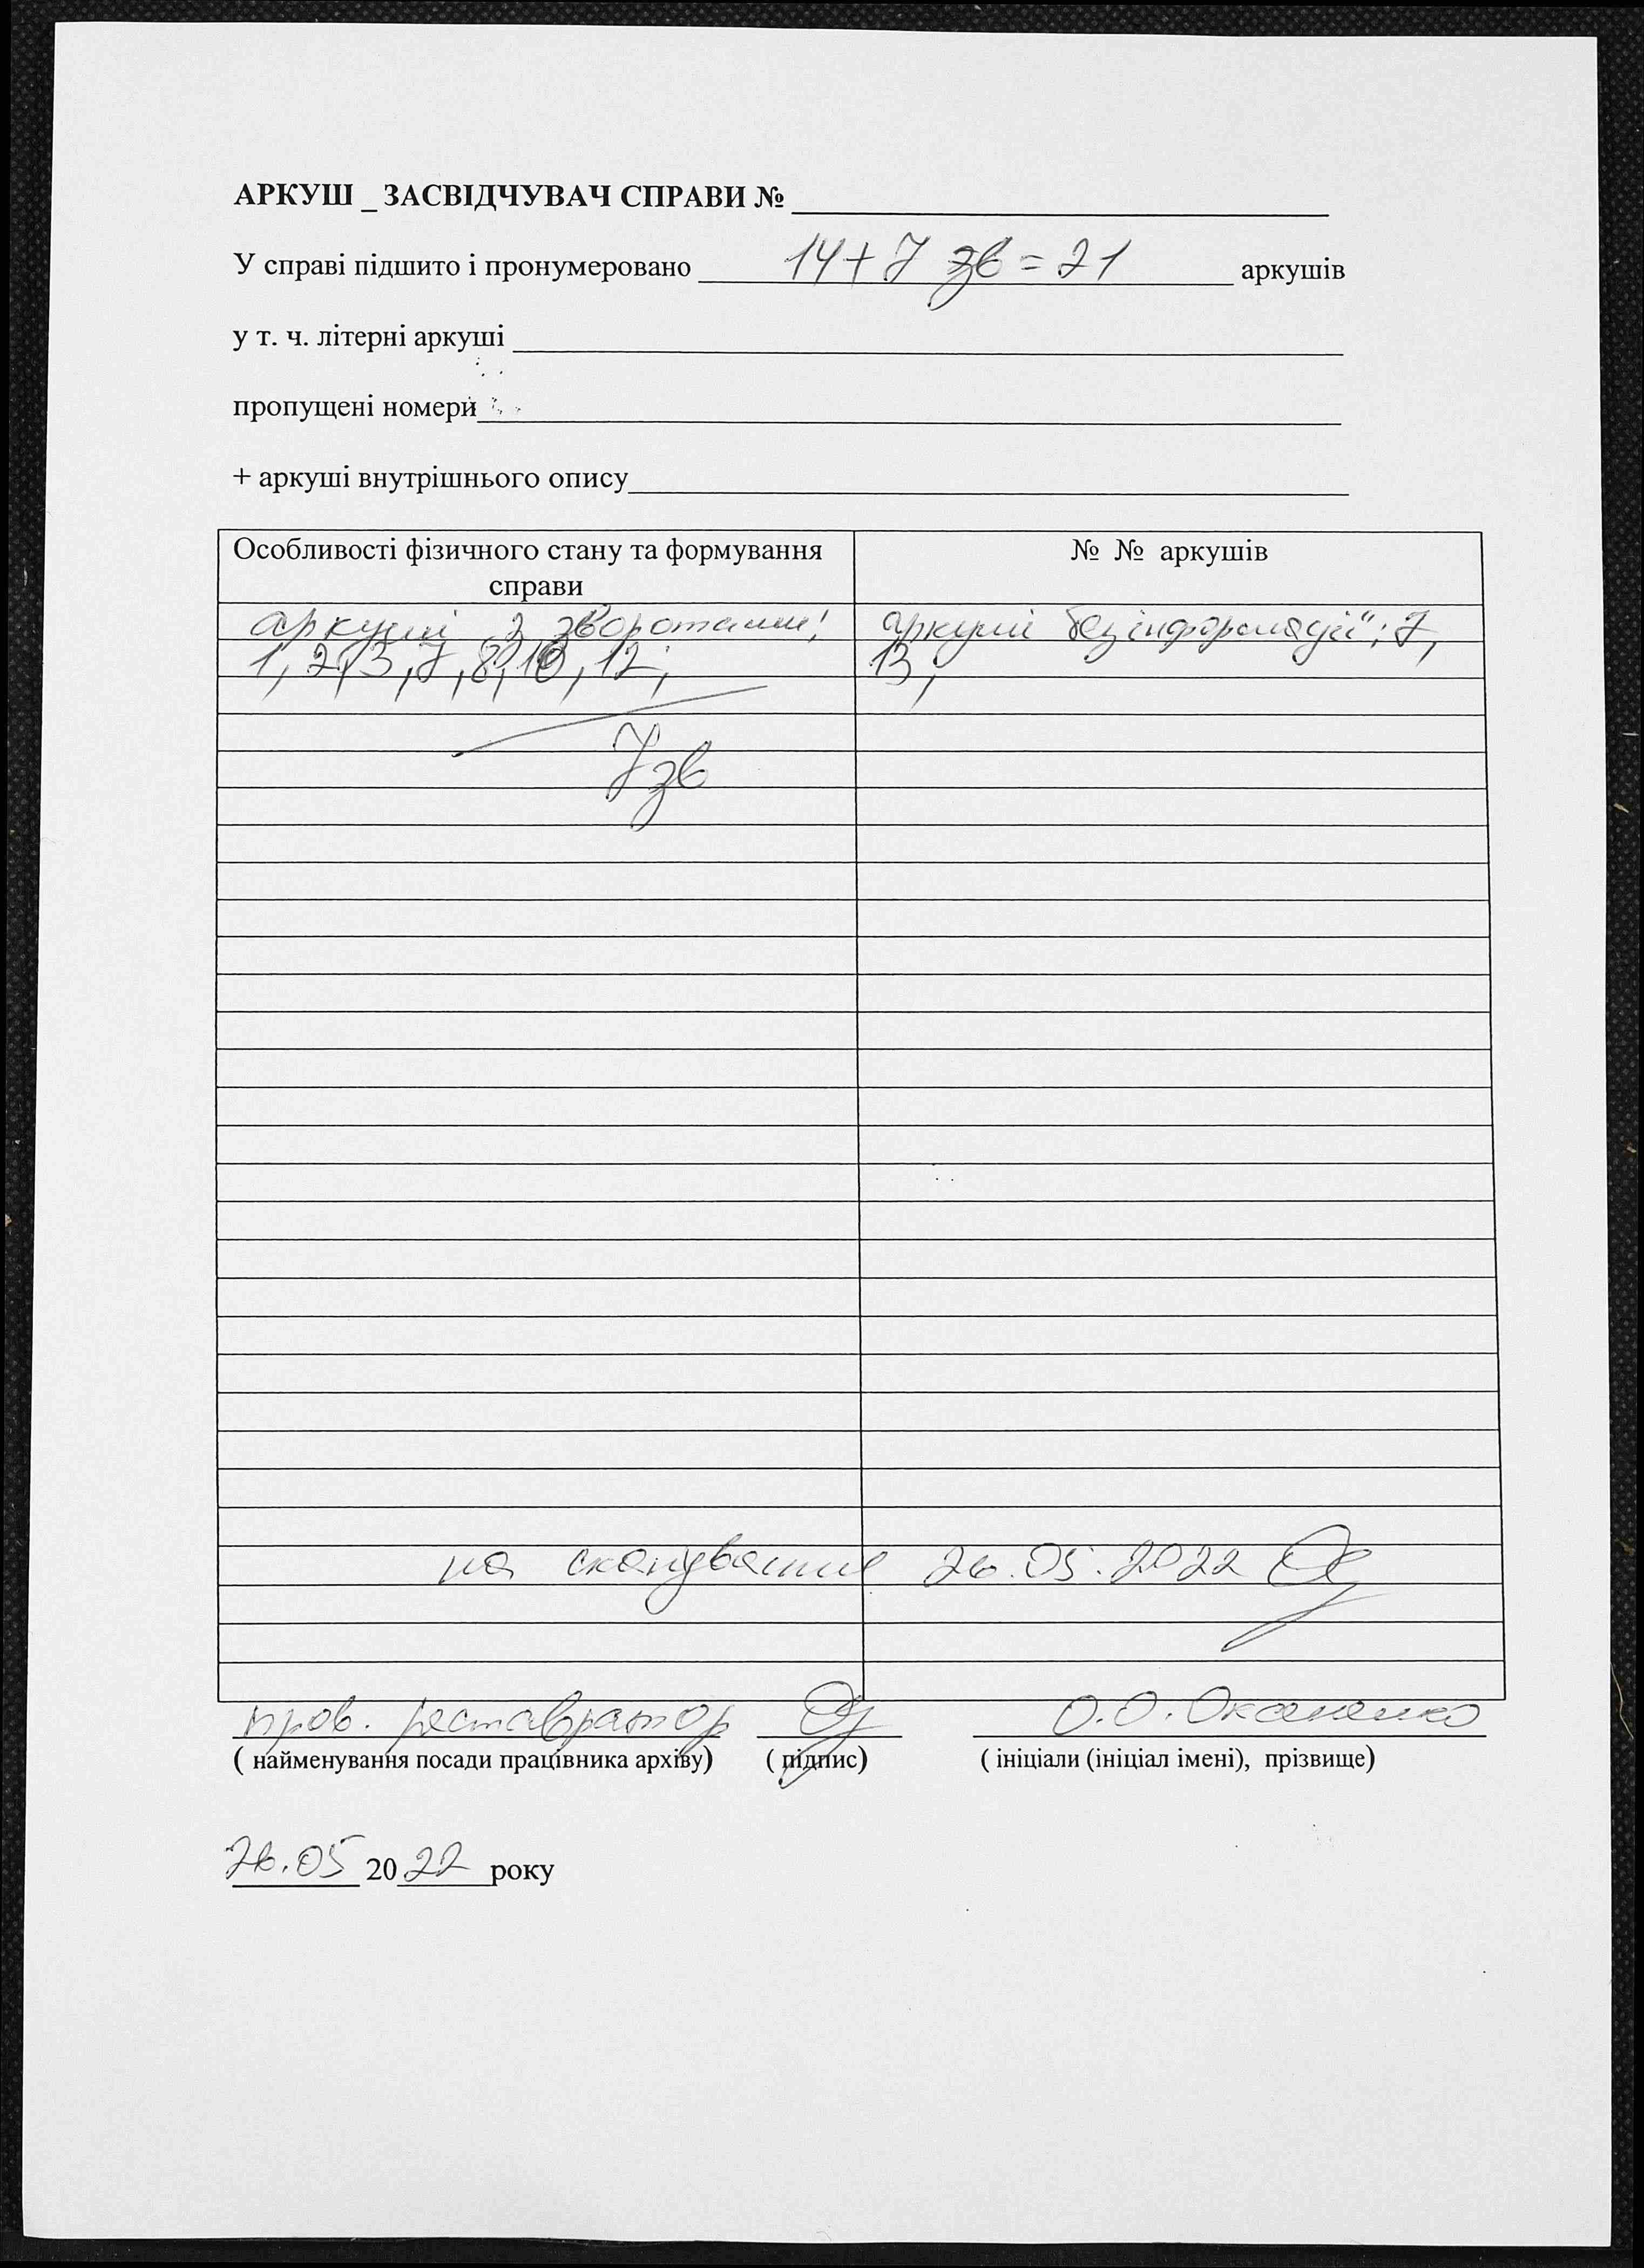 АРКУШ _ ЗАСВІДЧУВАЧ СПРАВИ №
У справі підшито і пронумеровано 14+7 зв = 21 аркушів
у т. ч. літерні аркуші
пропущені номери
+ аркуші внутрішнього опису
Особливості фізичного стану та формування справи
№ № аркушів
аркуші з зворотами: аркуші без інформації: 7,
1, 2, 3, 7, 8, 10, 12; 13,
7 зв
на сканування 26.05.2022
пров. реставратор О.О. Оканенко
( найменування посади працівника архіву) ( підпис) ( ініціали (ініціал імені), прізвище)
26.05 2022 року